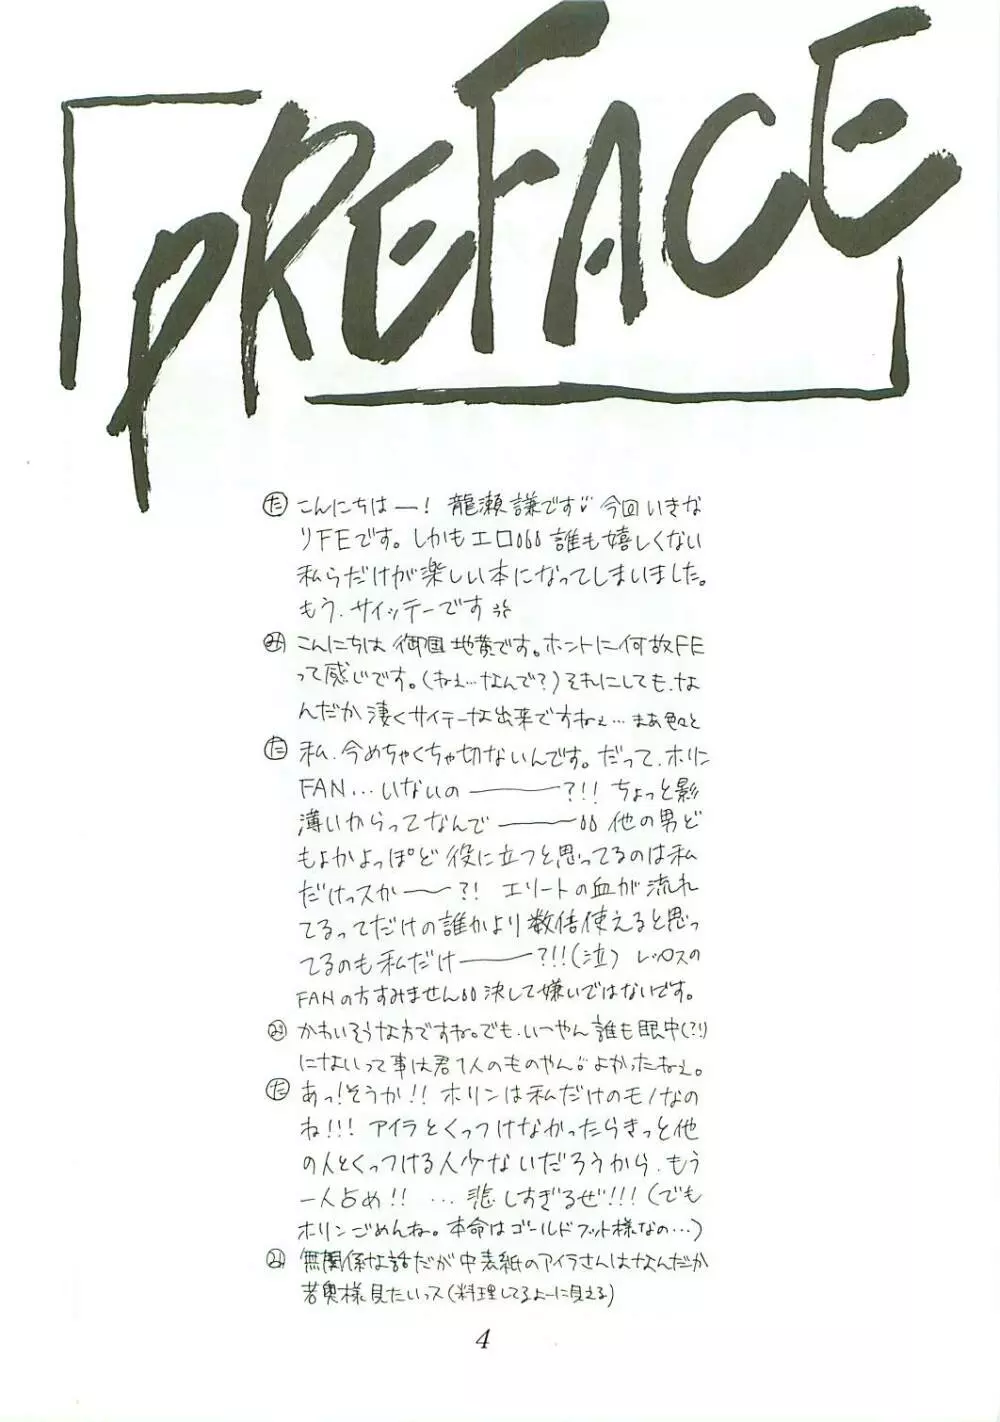 PREFACE
た こんにちはー! 龍瀬謙です 今回いきな
りFEです。しかもエロ 誰も嬉しくない
私らだけが楽しい本になってしまいました。
もう、サイッテーです
み こんにちは 御国地黄です。ホントに何故FE
って感じです。(ねェ…なんで?)それにしても、な
んだか凄くサイテーな出来ですねェ… まあ色々と
た 私、今めちゃくちゃ切ないんです。だって、ホリン
FAN…いないの―――?!! ちょっと影
薄いからってなんで――― 他の男ど
もよかよっぽど役に立つと思ってるのは私
だけっスか――?! エリートの血が流れ
てるってだけの誰かより数倍使えると思っ
てるのも私だけ―――?!!(泣) レックスの
FANの方すみません 決して嫌いではないです。
み かわいそうな方ですね。でも、いーやん誰も眼中(?!)
にないって事は君1人のものやん よかったねぇ。
た あっ!そうか!! ホリンは私だけのモノなの
ね!!! アイラとくっつけなかったらきっと他
の人とくっつける人少ないだろうから、もう
一人占め!! …悲しすぎるぜ!!!(でも
ホリンごめんね。本命はゴールドフット様なの…)
み 無関係な話だが中表紙のアイラさんはなんだか
若奥様見たいっス(料理してるよーに見える)
4